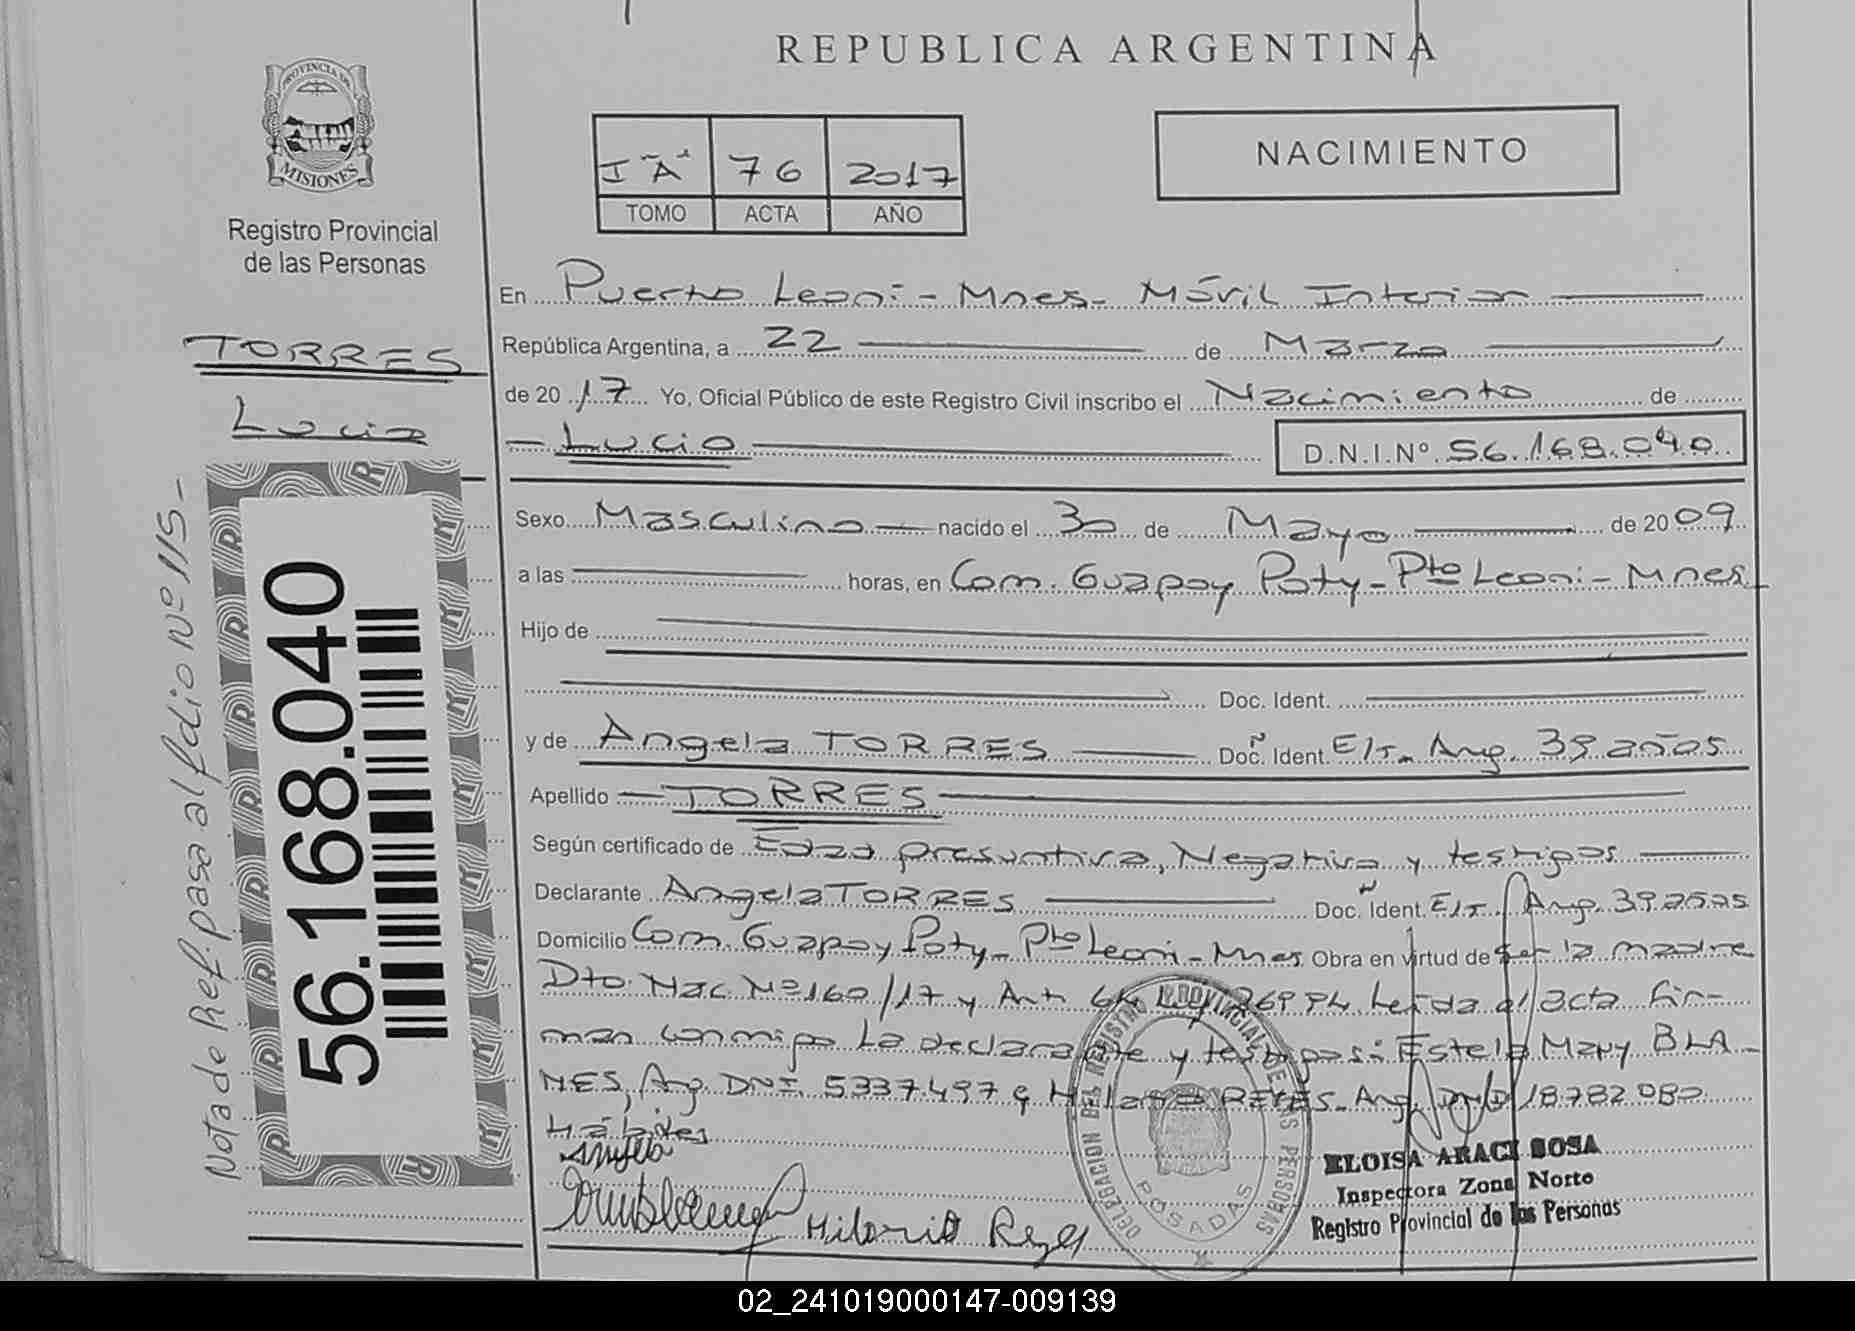 REPUBLICA ARGENTINA
PROVINCIA DE
MISIONES
Registro Provincial
de las Personas
I "A" 76 2017
TOMO ACTA AÑO
NACIMIENTO
TORRES
Lucio
Nota de Ref. pasa al folio Nº 115-
56.168.040
En Puerto Leoni - Mnes - Móvil Interior
República Argentina, a 22 de Marzo
de 2017 Yo, Oficial Público de este Registro Civil inscribo el Nacimiento de
- Lucio
D.N.I.Nº. 56.168.040
Sexo Masculino nacido el 30 de Mayo de 2009
a las horas, en Com. Guapoy Poty - Pto Leoni - Mnes
Hijo de
Doc. Ident.
y de Angela TORRES Doc. Ident. Arg. 39 años
Apellido TORRES
Según certificado de Edad presuntiva, Negativa y testigos
Declarante Angela TORRES Doc. Ident. Arg. 39 años
Domicilio Com. Guapoy Poty - Pto Leoni - Mnes Obra en virtud de ser la madre
Dto. Nac. Nº 160/17 y Art. 64 Ley 26994 Leída el acta fir-
man conmigo La declarante y testigos: Estela Mary BLA-
NES, Arg. DNI. 5337.497 y Hilario REYES - Arg. DNI 18.782.082
Hábiles
Hilario Reyes
DELEGACION DEL REGISTRO PROVINCIAL DE LAS PERSONAS
POSADAS
ELOISA ARACI SOSA
Inspectora Zona Norte
Registro Provincial de las Personas
02_241019000147-009139